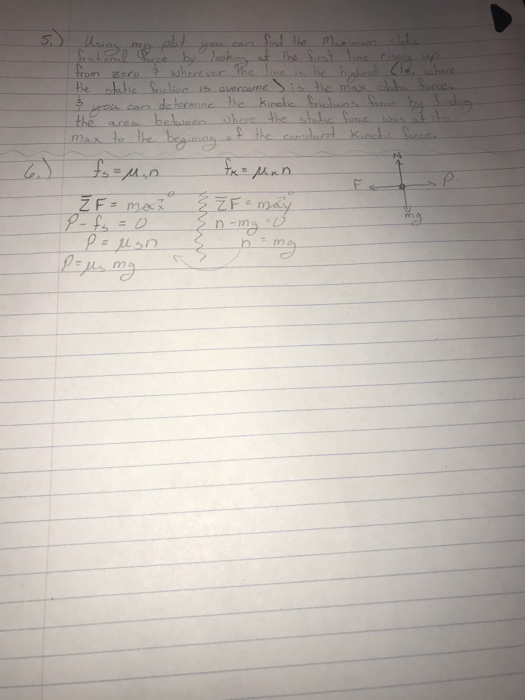 5.) Using my plot you can find the Maximum static
frictional force by looking at the first line rising up
from zero & wherever the line is the highest (ie. where
the static friction is overcame) is the max static force.
& you can determine the kinetic frictions force by finding
the area between where the static force was at its
max to the begining of the constant kinetic force.
6.) fs = μsn fk = μkn
ΣF = max 0 ΣF = may 0
P - fs = 0 n - mg = 0
P = μsn n = mg
P = μs mg
N
F P
mg